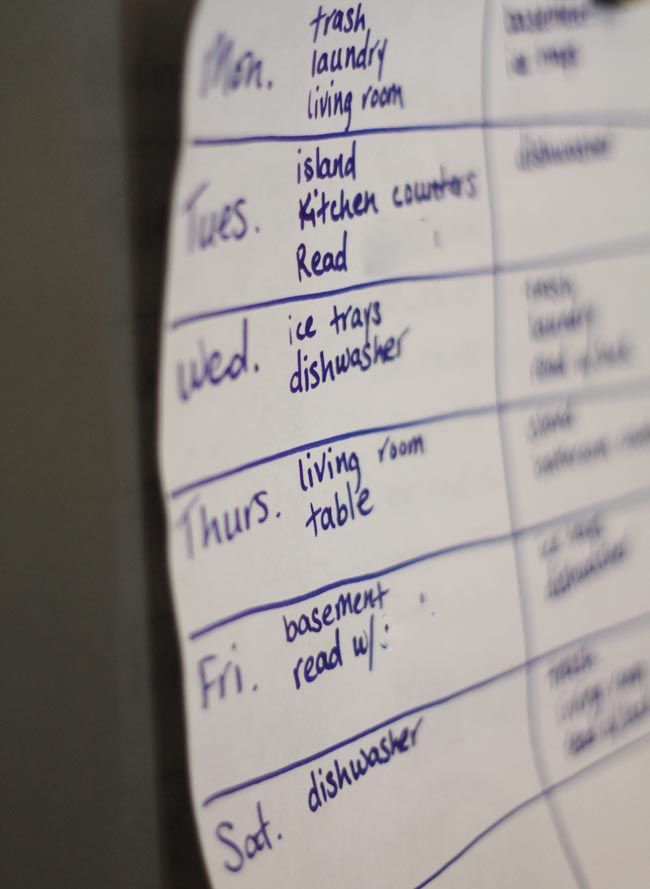 Mon.
trash
laundry
living room
basement
ice trays
Tues.
island
Kitchen counters
Read
dishwasher
Wed.
ice trays
dishwasher
trash
laundry
Thurs.
living room
table
island
Fri.
basement
read w/
ice trays
dishwasher
Sat.
dishwasher
trash
living room